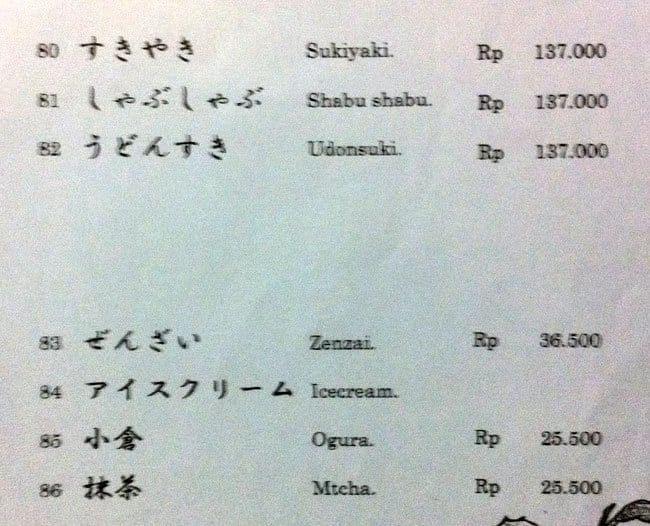 80 すきやき Sukiyaki. Rp 137.000
81 しゃぶしゃぶ Shabu shabu. Rp 137.000
82 うどんすき Udonsuki. Rp 137.000
83 ぜんざい Zenzai. Rp 36.500
84 アイスクリーム Icecream.
85 小倉 Ogura. Rp 25.500
86 抹茶 Mtcha. Rp 25.500